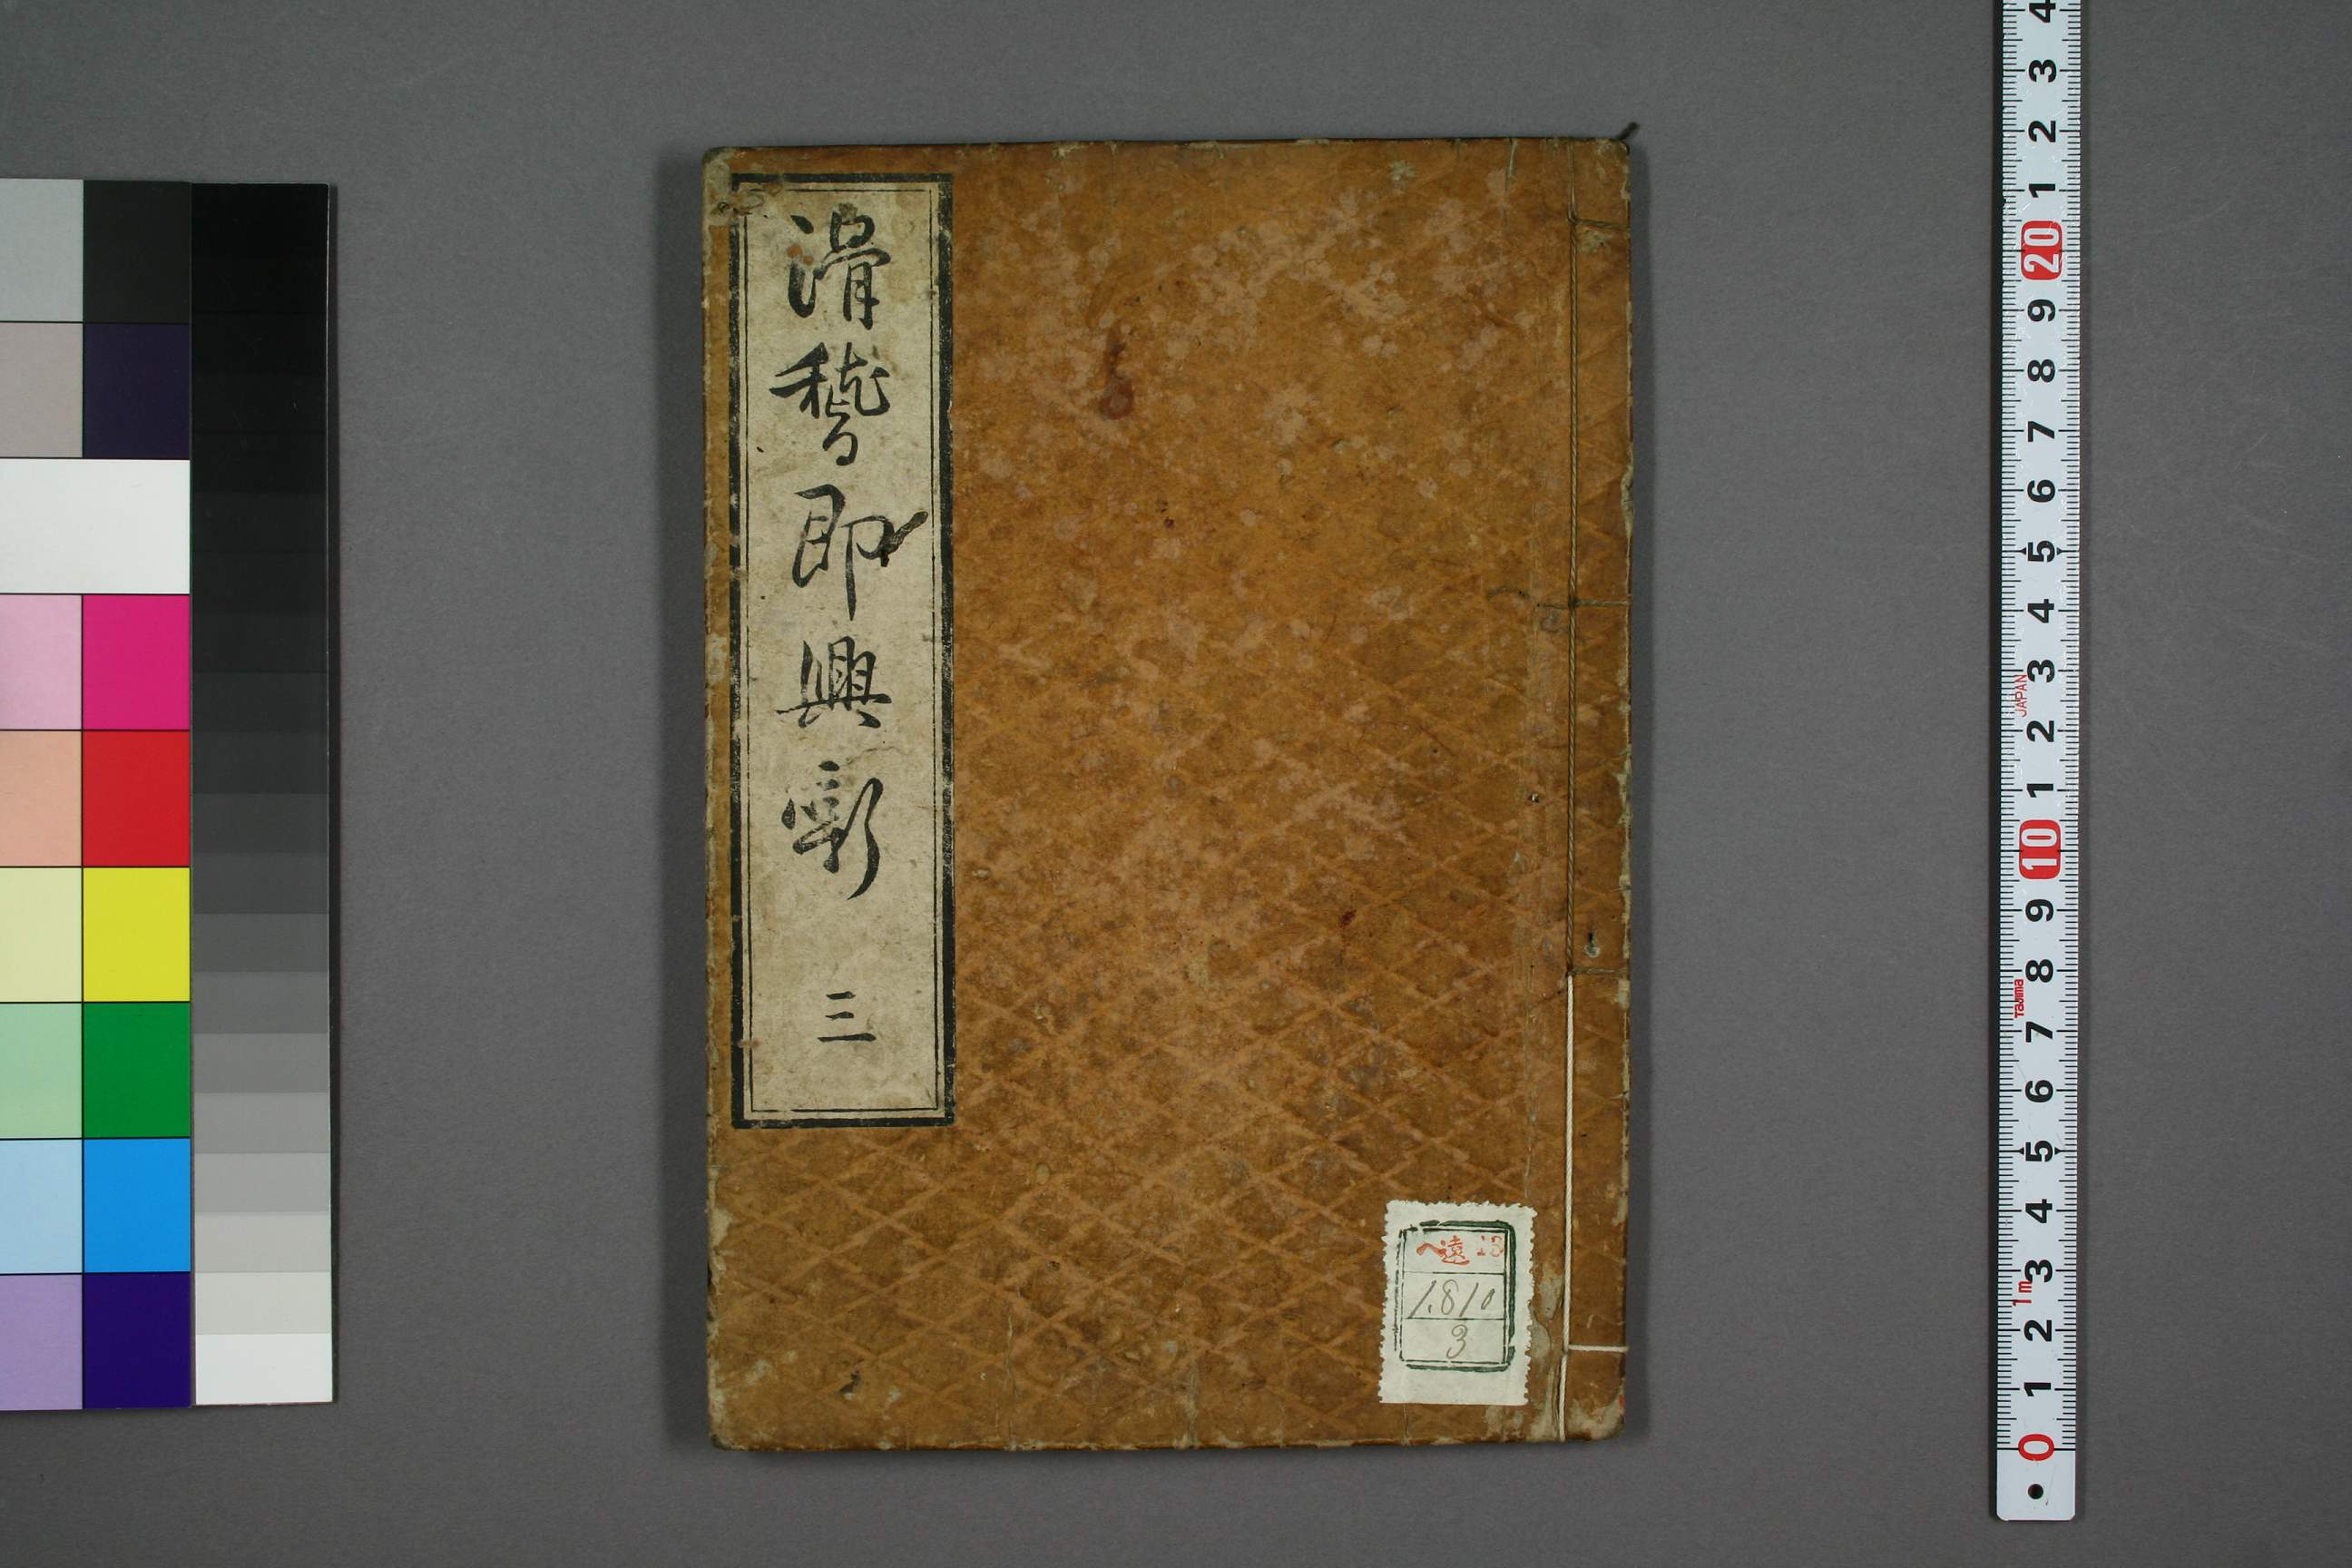 滑稽即興噺 三
へ遠
1810
3
4
3
2
1
20
9
8
7
6
5
4
3
JAPAN
2
1
10
9
8
Tajima
7
6
5
4
3
1m
2
1
0